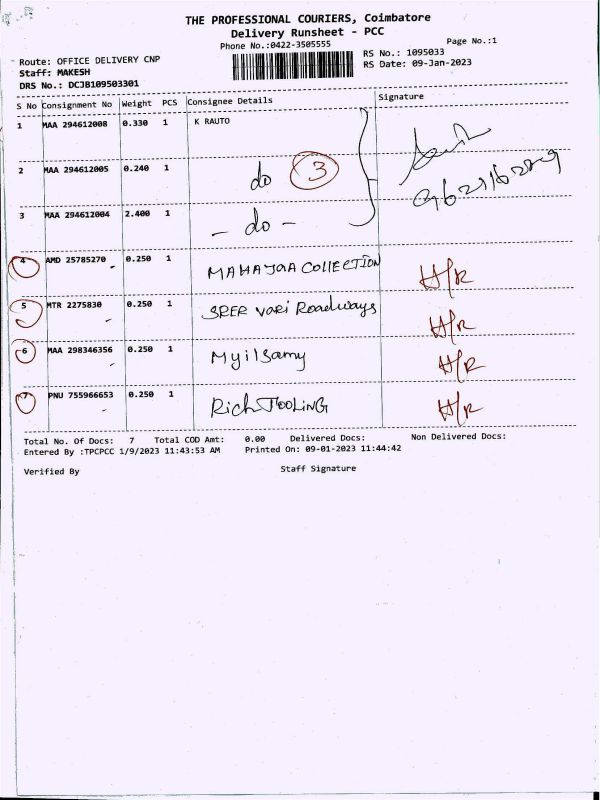 THE PROFESSIONAL COURIERS, Coimbatore
Delivery Runsheet - PCC
Phone No.:0422-3505555 Page No.:1
Route: OFFICE DELIVERY CNP RS No.: 1095033
Staff: MAKESH RS Date: 09-Jan-2023
DRS No.: DCJB109503301
S No Consignment No Weight PCS Consignee Details Signature
1 MAA 294612008 0.330 1 K RAUTO
2 MAA 294612005 0.240 1 do 3
3 MAA 294612004 2.400 1 - do -
4 AMD 25785270 0.250 1 MAHAJAA COLLECTION H/R
5 MTR 2275830 0.250 1 SREE VARI Roadways H/R
6 MAA 298346356 0.250 1 Myilsamy H/R
7 PNU 755966653 0.250 1 Rich TOOLING H/R
Total No. Of Docs: 7 Total COD Amt: 0.00 Delivered Docs: Non Delivered Docs:
Entered By :TPCPCC 1/9/2023 11:43:53 AM Printed On: 09-01-2023 11:44:42
Verified By Staff Signature